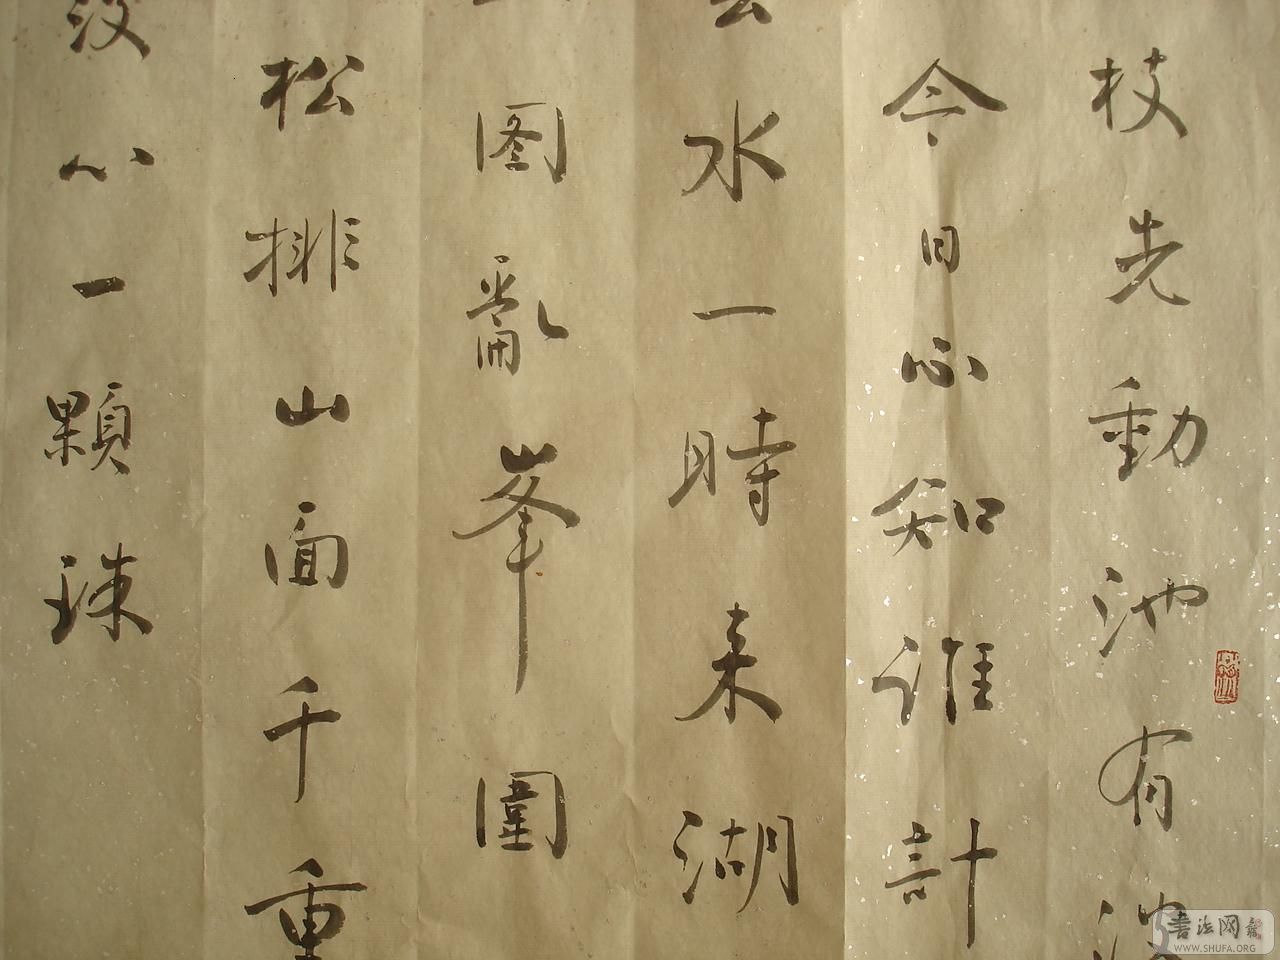 枝先動池有波
今日心知誰計
水一時来湖
图亂峯圍
松排山面千重
波心一顆珠
書法网
WWW.SHUFA.ORG